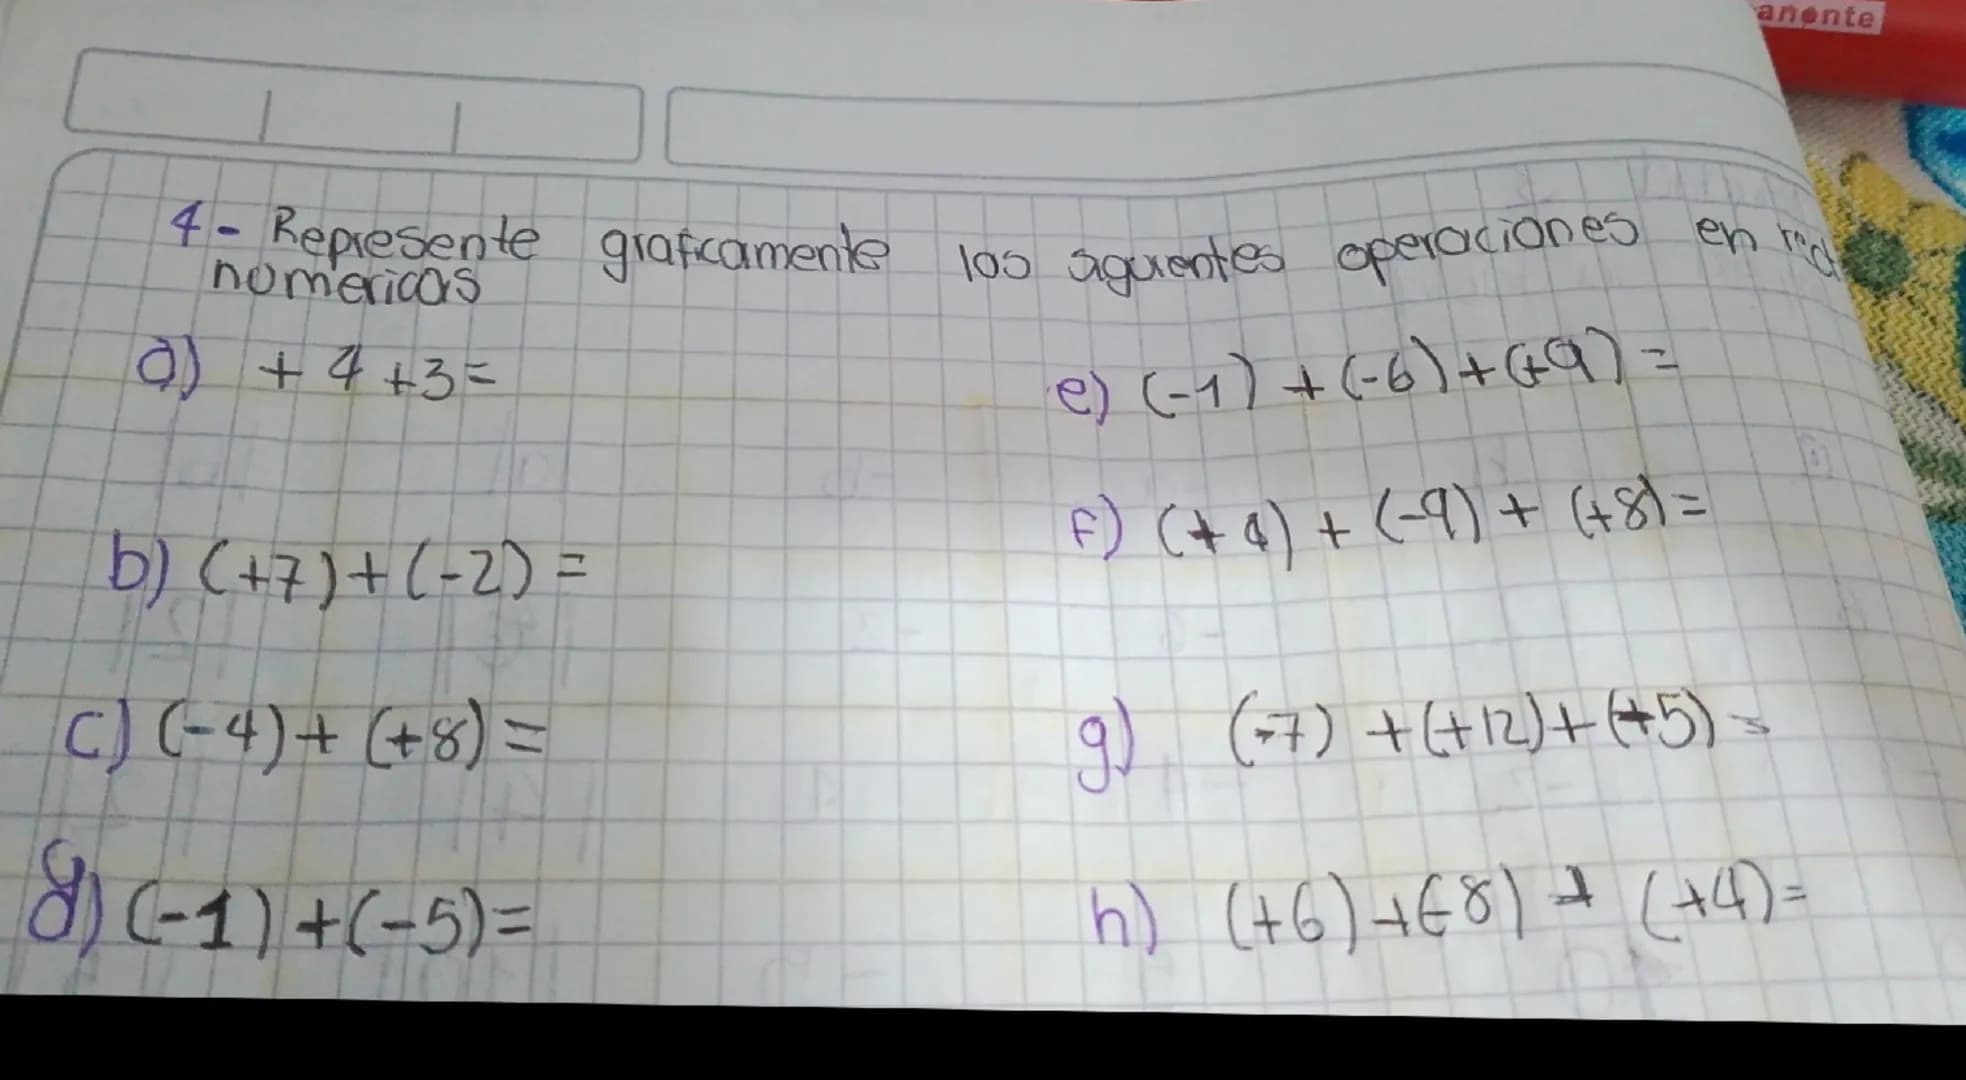 anente
4- Represente graficamente las siguientes operaciones en rect
numericas
a) + 4 + 3 =
b) (+7) + (-2) =
c) (-4) + (+8) =
d) (-1) + (-5) =
e) (-1) + (-6) + (+9) =
f) (+4) + (-9) + (+8) =
g) (-7) + (+12) + (+5) =
h) (+6) + (-8) + (+4) =